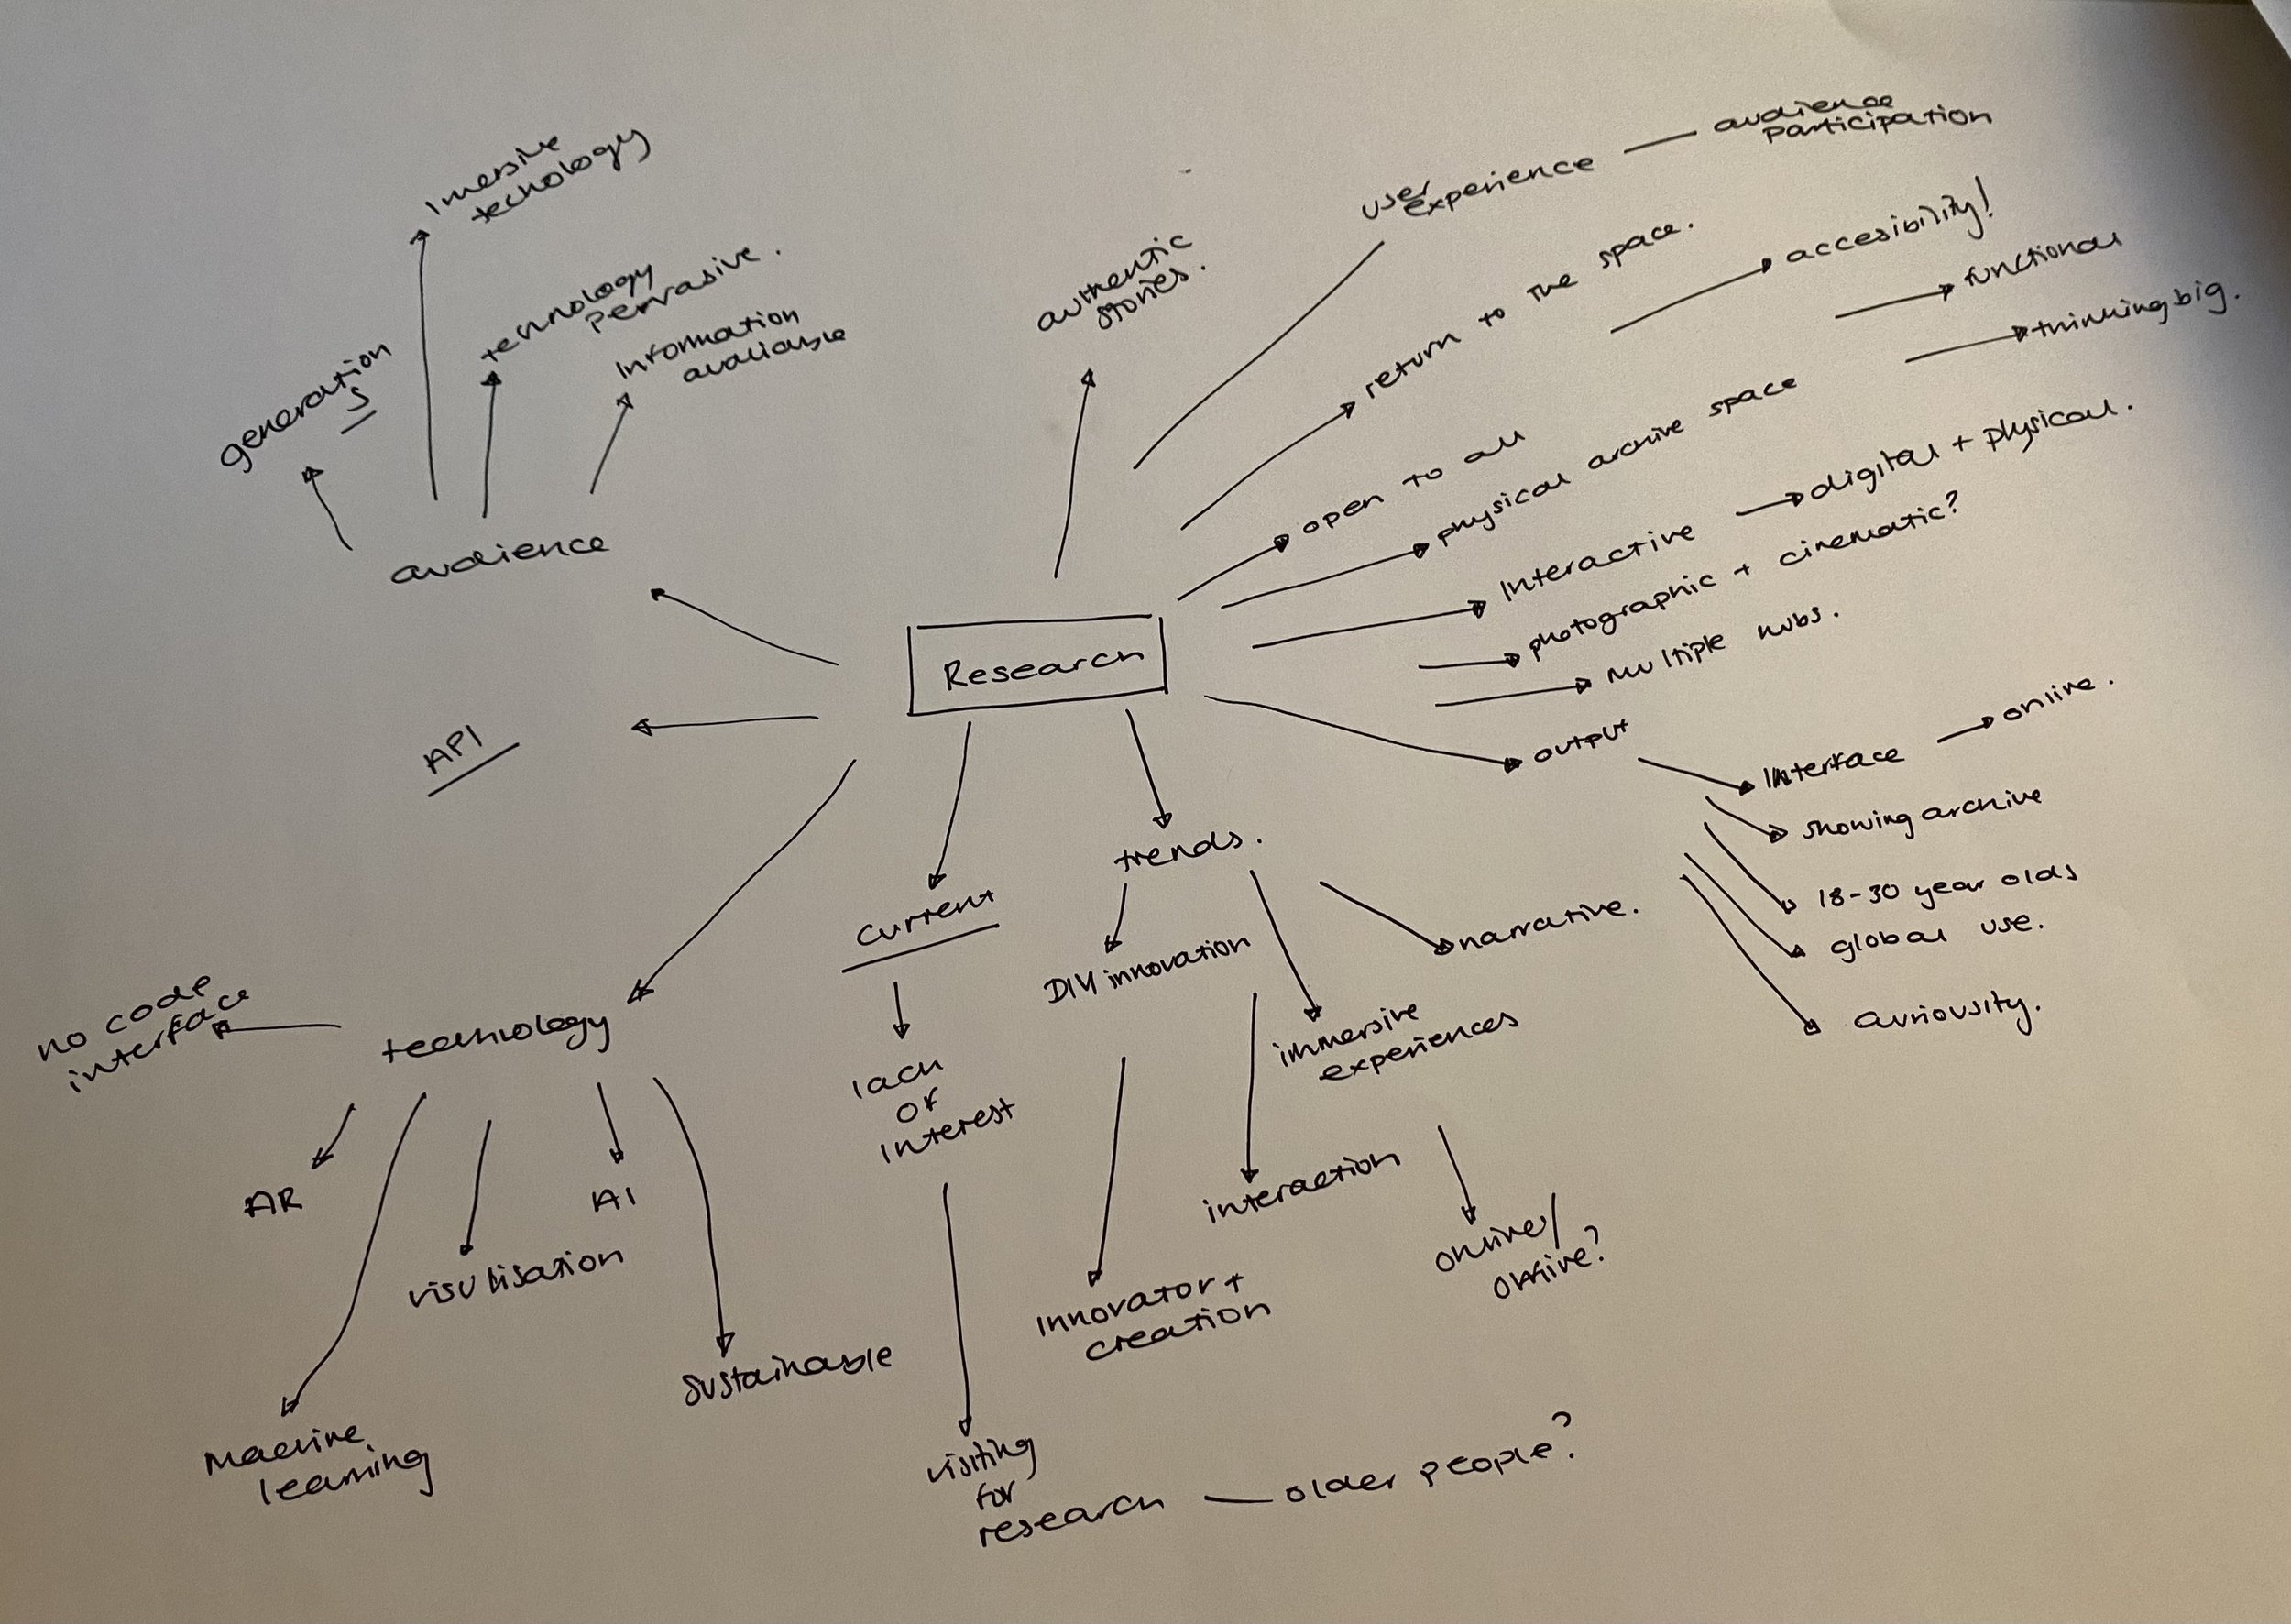 Imersive
tecnology
technology
pervasive.
Information
avaliable
generation
s
audience
authentic
stories.
user
experience
audience
participation
return to the space.
accesibility!
functional
thinking big.
open to all
physical archive space
Interactive
digital + physical.
photographic + cinematic?
multiple hubs.
Research
API
output
Interface
online.
showing archive
18-30 year olds
global use.
curiousity.
trends.
DIY innovation
narrative.
immersive
experiences
interaction
online/
offline?
Innovator +
creation
current
lack
of
interest
visiting
for
research
older people?
technology
no code
interface
AR
visulisation
AI
sustainable
Machine
learning